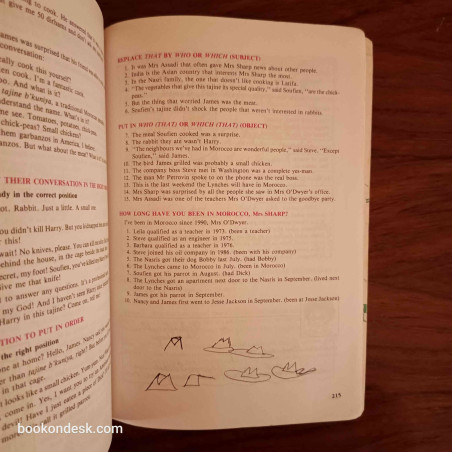 ng to cook.
give me 50 dirhams and don't
ames was surprised that his friend
conversation:
cally cook this yourself?
en cook. I'm a fantastic cook.
o. And what is it?
tajine b'kamja, a traditional
understand the name. What's in it?
me see. Tomatoes, potatoes, chick-peas.
chick-peas? Small chickens?
them garbanzos in America, I believe.
anzos. But what about the meat? What's
THEIR CONVERSATION IN THE
dy in the correct position
ot. Rabbit. Just a little. A small
didn't kill Harry. But you kidnapped
r this!
wait! No knives, please. You can
behind the house, in the cage beside
ecret, my foot! Soufian, you've killed
Give me that knife!
to answer any questions. It's a
my God! And I haven't seen Harry
Harry in this tajine? Come on, tell me!
TION TO PUT IN ORDER
the right position
one at home? Hello, James. Nancy said
er than tajine b'kamja, right? But
in that cage.
looks like a small chicken.
come in. Yes, I want you to
devil! Have I just eaten a
more. I got it grilled parrot.
REPLACE THAT BY WHO OR WHICH (SUBJECT):
1. It was Mrs Amadi that often gave Mrs Sharp news about other people.
2. India is the Asian country that interests Mrs Sharp the most.
3. In the Nasri family, the one that doesn't like cooking is Latifa.
4. "The vegetables that give this tajine its special quality," said Soufian, "are the chick-
peas."
5. But the thing that worried James was the meat.
6. Soufian's tajine didn't shock the people that weren't interested in rabbits.
PUT IN WHO (THAT) OR WHICH (THAT) (OBJECT):
7. The meal Soufian cooked was a surprise.
8. The rabbit they ate wasn't Harry.
9. "The neighbours we've had in Morocco are wonderful people," said Steve. "Except
Soufian," said James.
10. The bird James grilled was probably a small chicken.
11. The company boss Steve met in Washington was a complete yes-man.
12. The man Mr Perrovin spoke to on the phone was the real boss.
13. This is the last weekend the Lynches will have in Morocco.
14. Mrs Sharp was surprised by all the people she saw in Mrs O'Dwyer's office.
15. Mrs Amadi was one of the teachers Mrs O'Dwyer asked to the goodbye party.
HOW LONG HAVE YOU BEEN IN MOROCCO, Mrs SHARP?
I've been in Morocco since 1990, Mrs O'Dwyer.
1. Leila qualified as a teacher in 1973. (been a teacher)
2. Steve qualified as an engineer in 1975.
3. Barbara qualified as a teacher in 1976.
4. Steve joined his oil company in 1986. (been with his company)
5. The Nasris got their dog Bobby last July. (had Bobby)
6. The Lynches came to Morocco in July. (been in Morocco)
7. Soufian got his parrot in August. (had Dick)
8. The Lynches got an apartment next door to the Nasris in September. (lived next
door to the Nasris)
9. James got his parrot in September.
10. Nancy and James first went to Jesse Jackson in September. (been at Jesse Jackson)
215
bookondesk.com